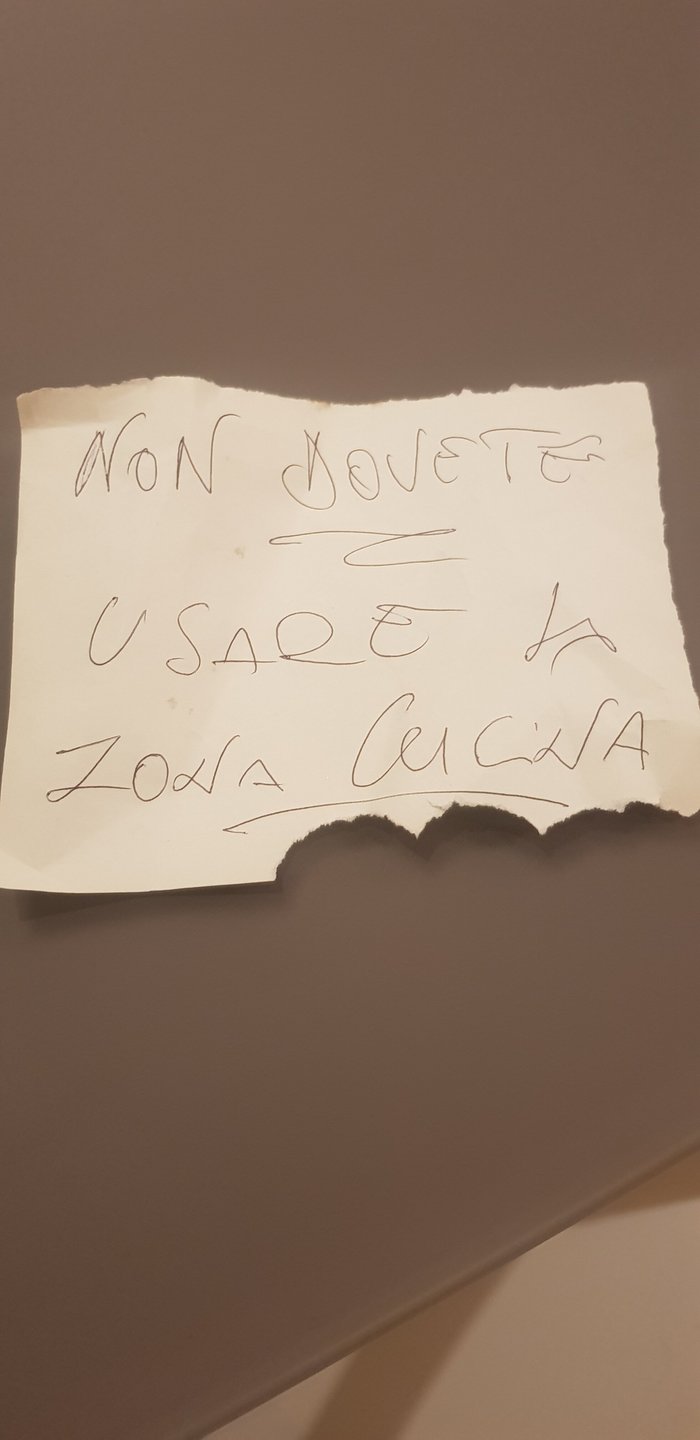 NON DOVETE
USARE LA
ZONA CUCINA